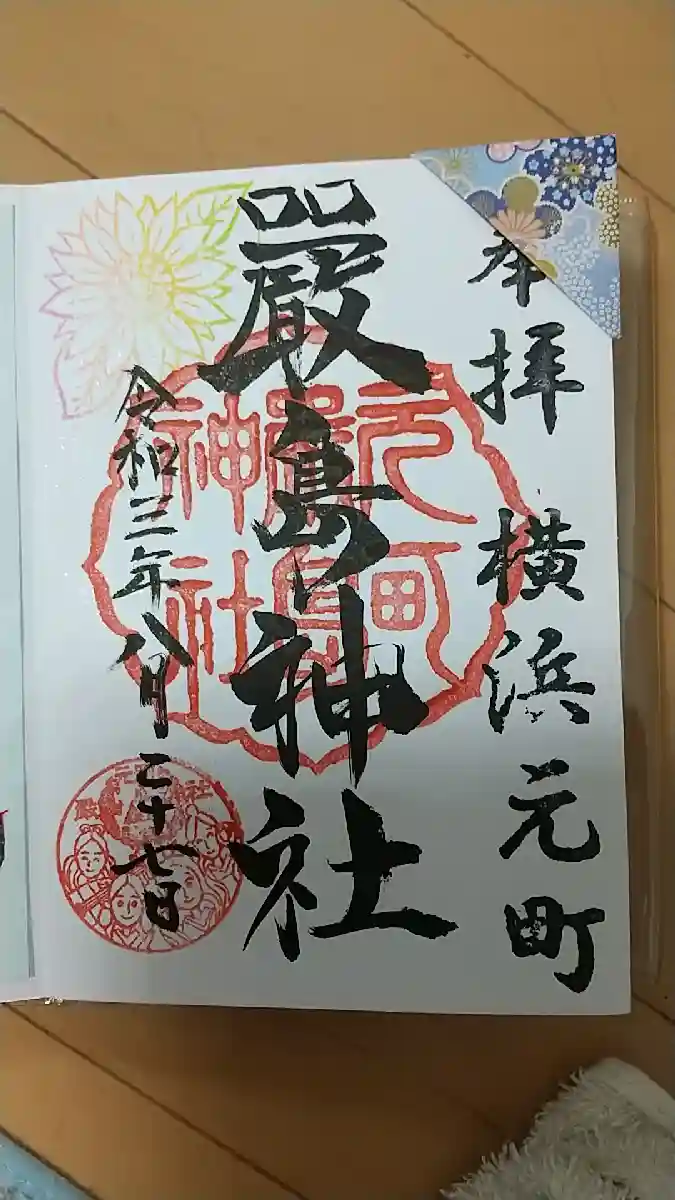 奉拝 横浜元町
嚴島神社
令和三年八月二十七日
元町
嚴島
神社